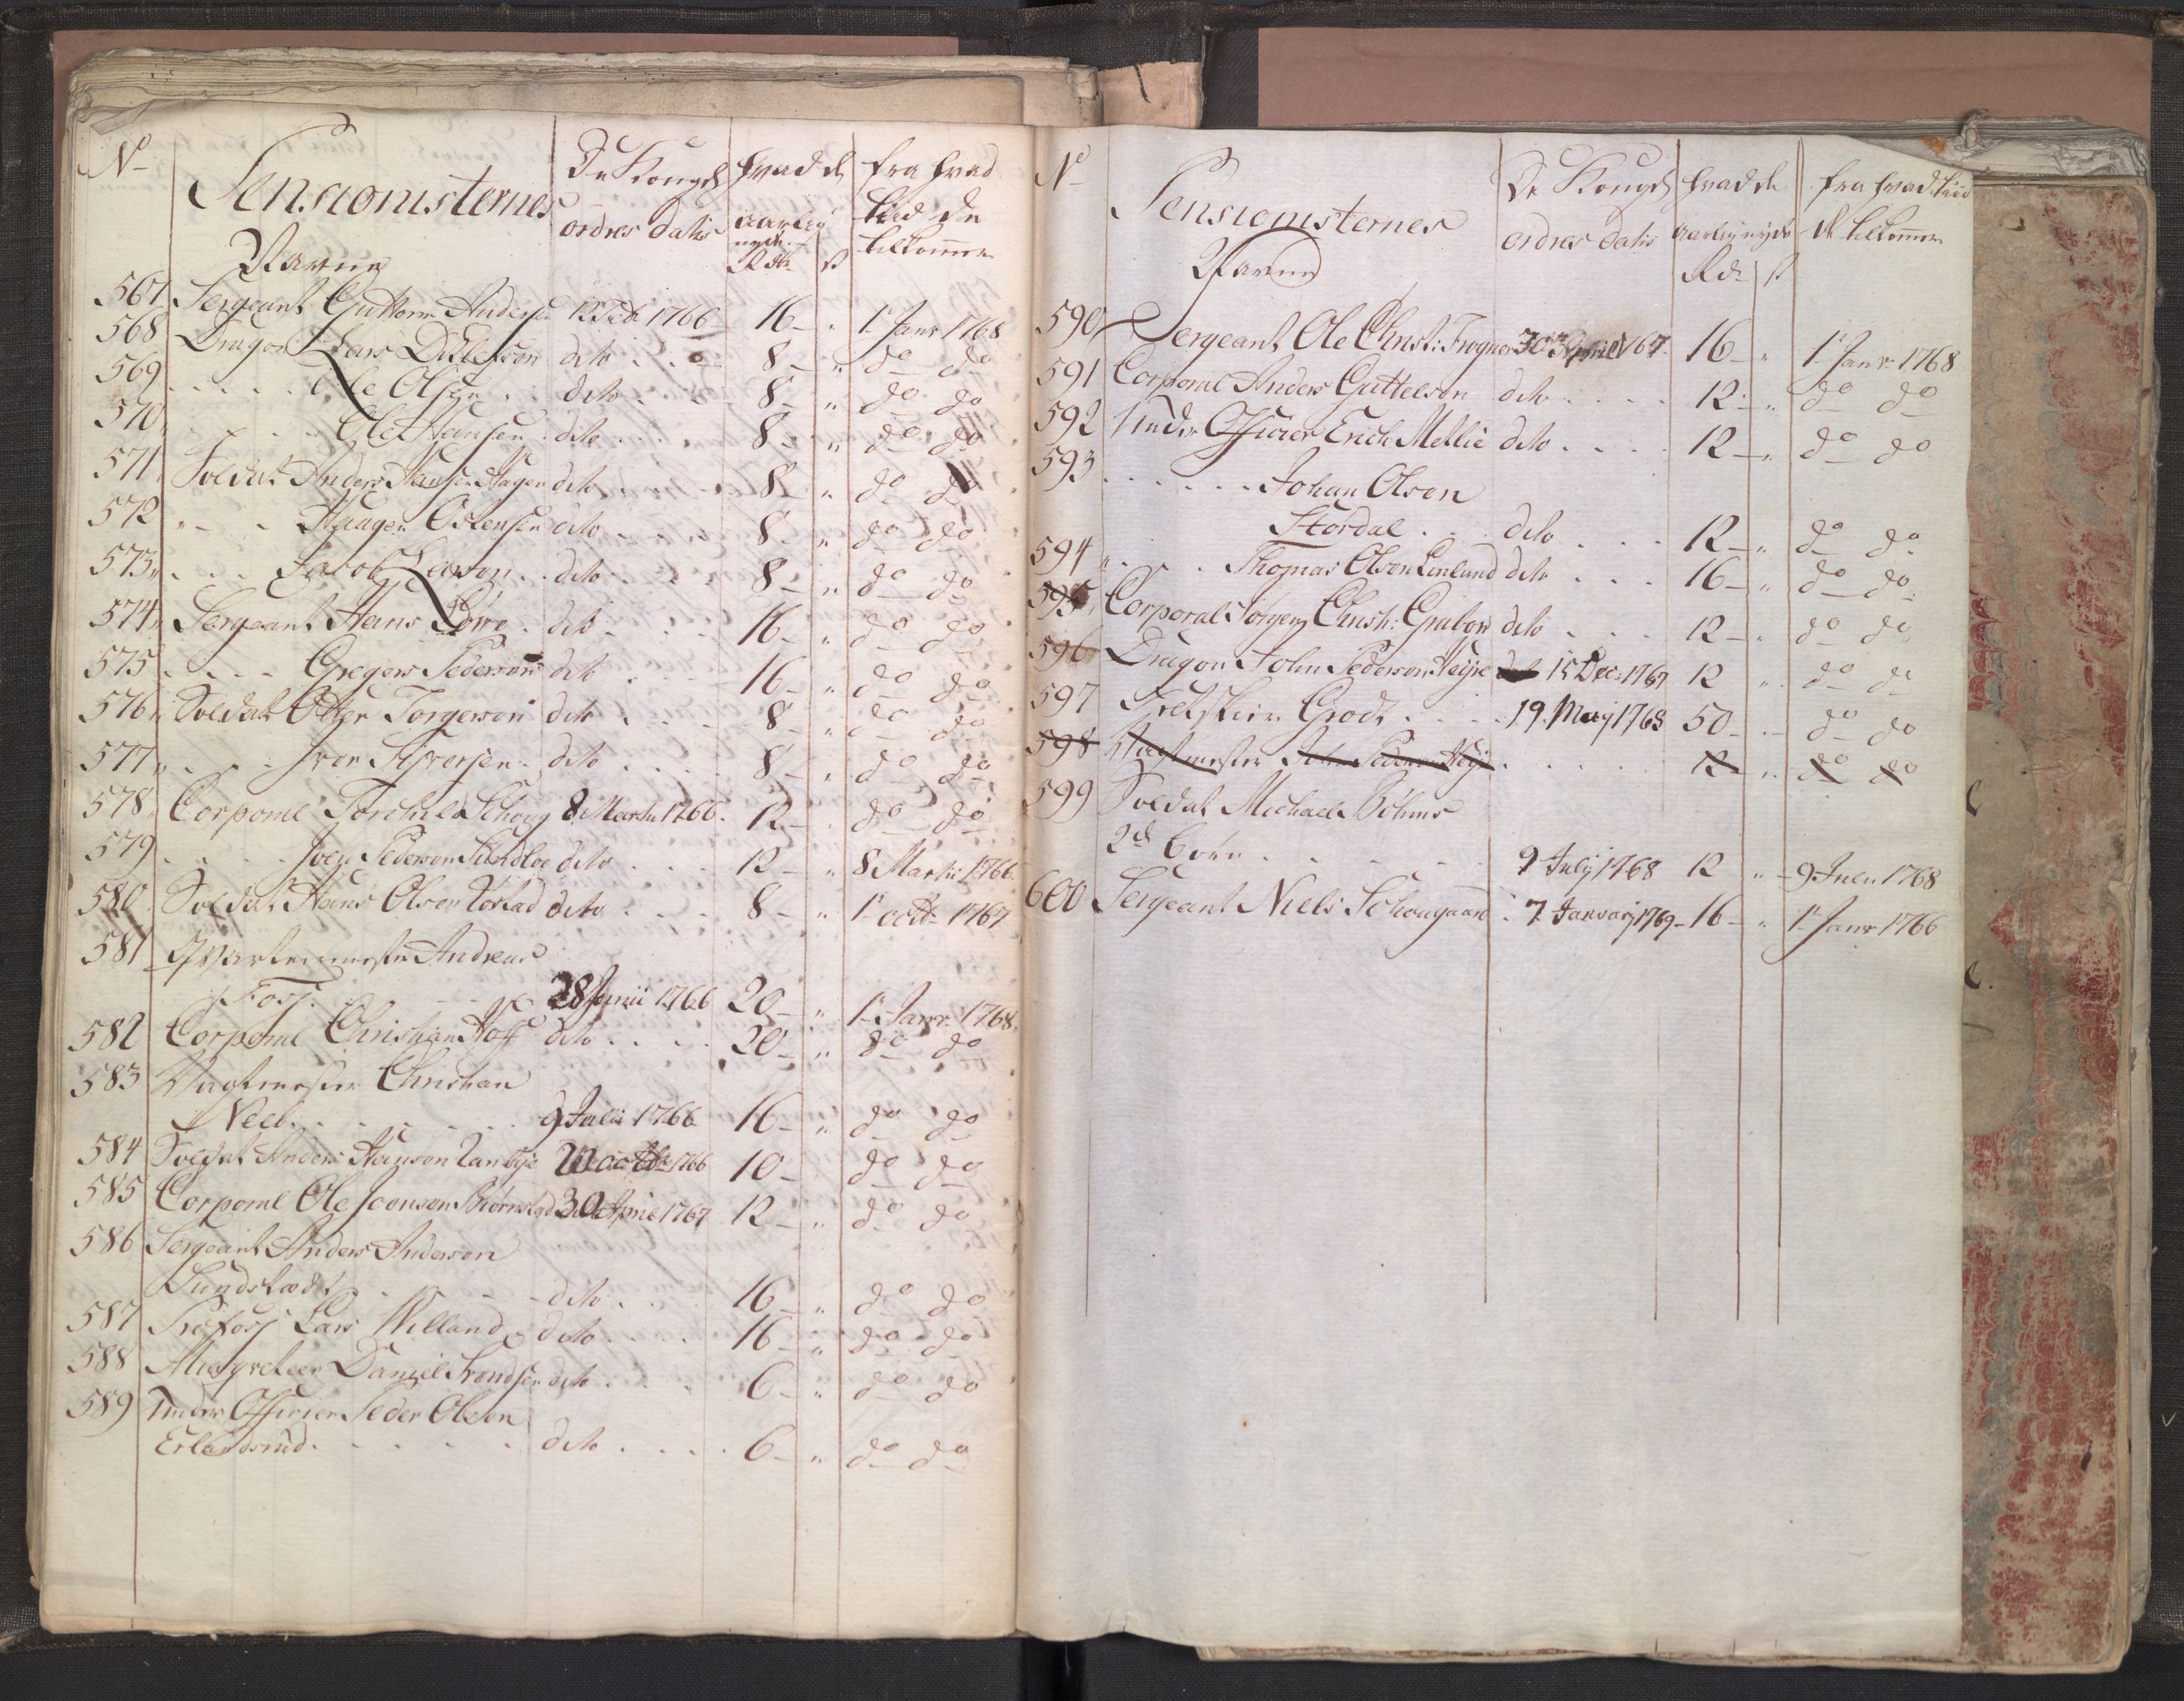 No
Pensionisternes
Navne
De Kongel
ordres datis
hvad de
aarlig
nyde
Rdr
s
fra hvad
tiid de
tilkommer
567 Sergeant Guttorm Andersen 12 Feb 1766 16 " 1 Janr 1768
568 Dragon Lars Ditlefson dito 8 " do do
569 Ole Olsen dito 8 " do do
570 Ole Hansen dito 8 " do do
571 Soldat Anders Hansen Hagen dito 8 " do do
572 Haagen Ostensen dito 8 " do do
573 Jacob Larson dito 8 " do do
574 Sergeant Hans Löwe dito 16 " do do
575 Gregers Pederson dito 16 " do do
576 Soldat Oden Torgerson dito 8 " do do
577 Iver Sifversen dito 8 " do do
578 Corporal Torchild Schoug 8 Martii 1766 12 do do
579 Joen Pederson dito 12 " 8 Martii 1766
580 Soldat Hans Olson dito 8 " 1 octb 1767
581 Qvarteermester Andreas
Foss 28 Junii 1766 20 " 1 Janr 1768
582 Corporal Christian Hoff dito 20 " do do
583 Vagtmester Christian
Neel 9 Julii 1766 16 " do do
584 Soldat Anders Hanson octbr 1766 10 do do
585 Corporal Ole Joenson Biørnstad 30 Aprie 1767 12 " do do
586 Sergeant Anders Anderson
Sundstadt dito 16 " do do
587 Profoss Lars Willand dito 16 " do do
588 Musqveteer Daniel Trondsen dito 6 " do do
589 Under Officier Peder Olson
Erlandsrud dito 6 " do do
No
Pensionisternes
Navne
De Kongel
ordres datis
hvad de
aarlig nyde
Rdr s
fra hvad tiid
de tilkommer
590 Sergeant Ole Christ: Frogner 30 Aprie 1767 16 " 1 Janr 1768
591 Corporal Anders Guttelson dito 12 " do do
592 Under Officier Erich Mellie dito 12 " do do
593 Johan Olson
Stordal dito 12 " do do
594 Thomas Olson Linlund dito 16 " do do
595 Corporal Jörgen Christ: Grabow dito 12 " do do
596 Dragon John Pederson Heije 15 Dec: 1767 12 " do do
597 Feltskier Grodt 19 Maij 1768 50 do do
598 Vagtmester John Pederson Heije 12 " do do
599 Soldat Michael Böhms
2de Börn 9 Julij 1768 12 " 9 Julii 1768
600 Sergeant Niels Schougaard 7 Januarij 1769 16 " 1 Janr 1766